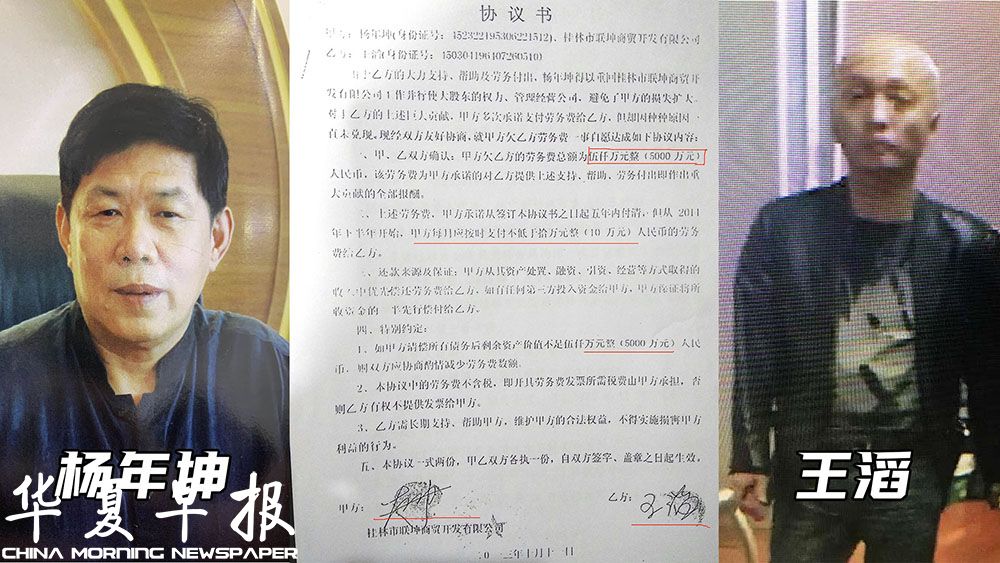 协议书
甲方：杨年坤(身份证号：152322195306221512)、桂林市联坤商贸开发有限公司
乙方：王滔(身份证号：150304196407260510)
于乙方的大力支持、帮助及劳务付出，杨年坤得以重回桂林市联坤商贸开
发有限公司工作并行使大股东的权力、管理经营公司，避免了甲方的损失扩大。
对于乙方的上述巨大贡献，甲方多次承诺支付劳务费给乙方，但却因种种原因一
直未兑现。现经双方友好协商，就甲方欠乙方劳务费一事自愿达成如下协议内容：
一、甲、乙双方确认：甲方欠乙方的劳务费总额为伍仟万元整（5000 万元）
人民币，该劳务费为甲方承诺的对乙方提供上述支持、帮助、劳务付出即作出重
大贡献的全部报酬。
二、上述劳务费，甲方承诺从签订本协议书之日起五年内付清，但从 2014
年下半年开始，甲方每月应按时支付不低于拾万元整（10 万元）人民币的劳务
费给乙方。
三、还款来源及保证：甲方从其资产处置、融资、引资、经营等方式取得的
收入中优先偿还劳务费给乙方，如有任何第三方投入资金给甲方，甲方保证将所
收资金的一半先行偿付给乙方。
四、特别约定：
1、如甲方清偿所有债务后剩余资产价值不足伍仟万元整（5000 万元）人民
币，则双方应协商酌情减少劳务费数额。
2、本协议中的劳务费不含税，即开具劳务费发票所需税费由甲方承担，否
则乙方有权不提供发票给甲方。
3、乙方需长期支持、帮助甲方，维护甲方的合法权益，不得实施损害甲方
利益的行为。
五、本协议一式两份，甲乙双方各执一份，自双方签字、盖章之日起生效。
甲方：
乙方：王滔
桂林市联坤商贸开发有限公司
二〇一三年十月十一日
杨年坤
王滔
华夏早报
CHINA MORNING NEWSPAPER